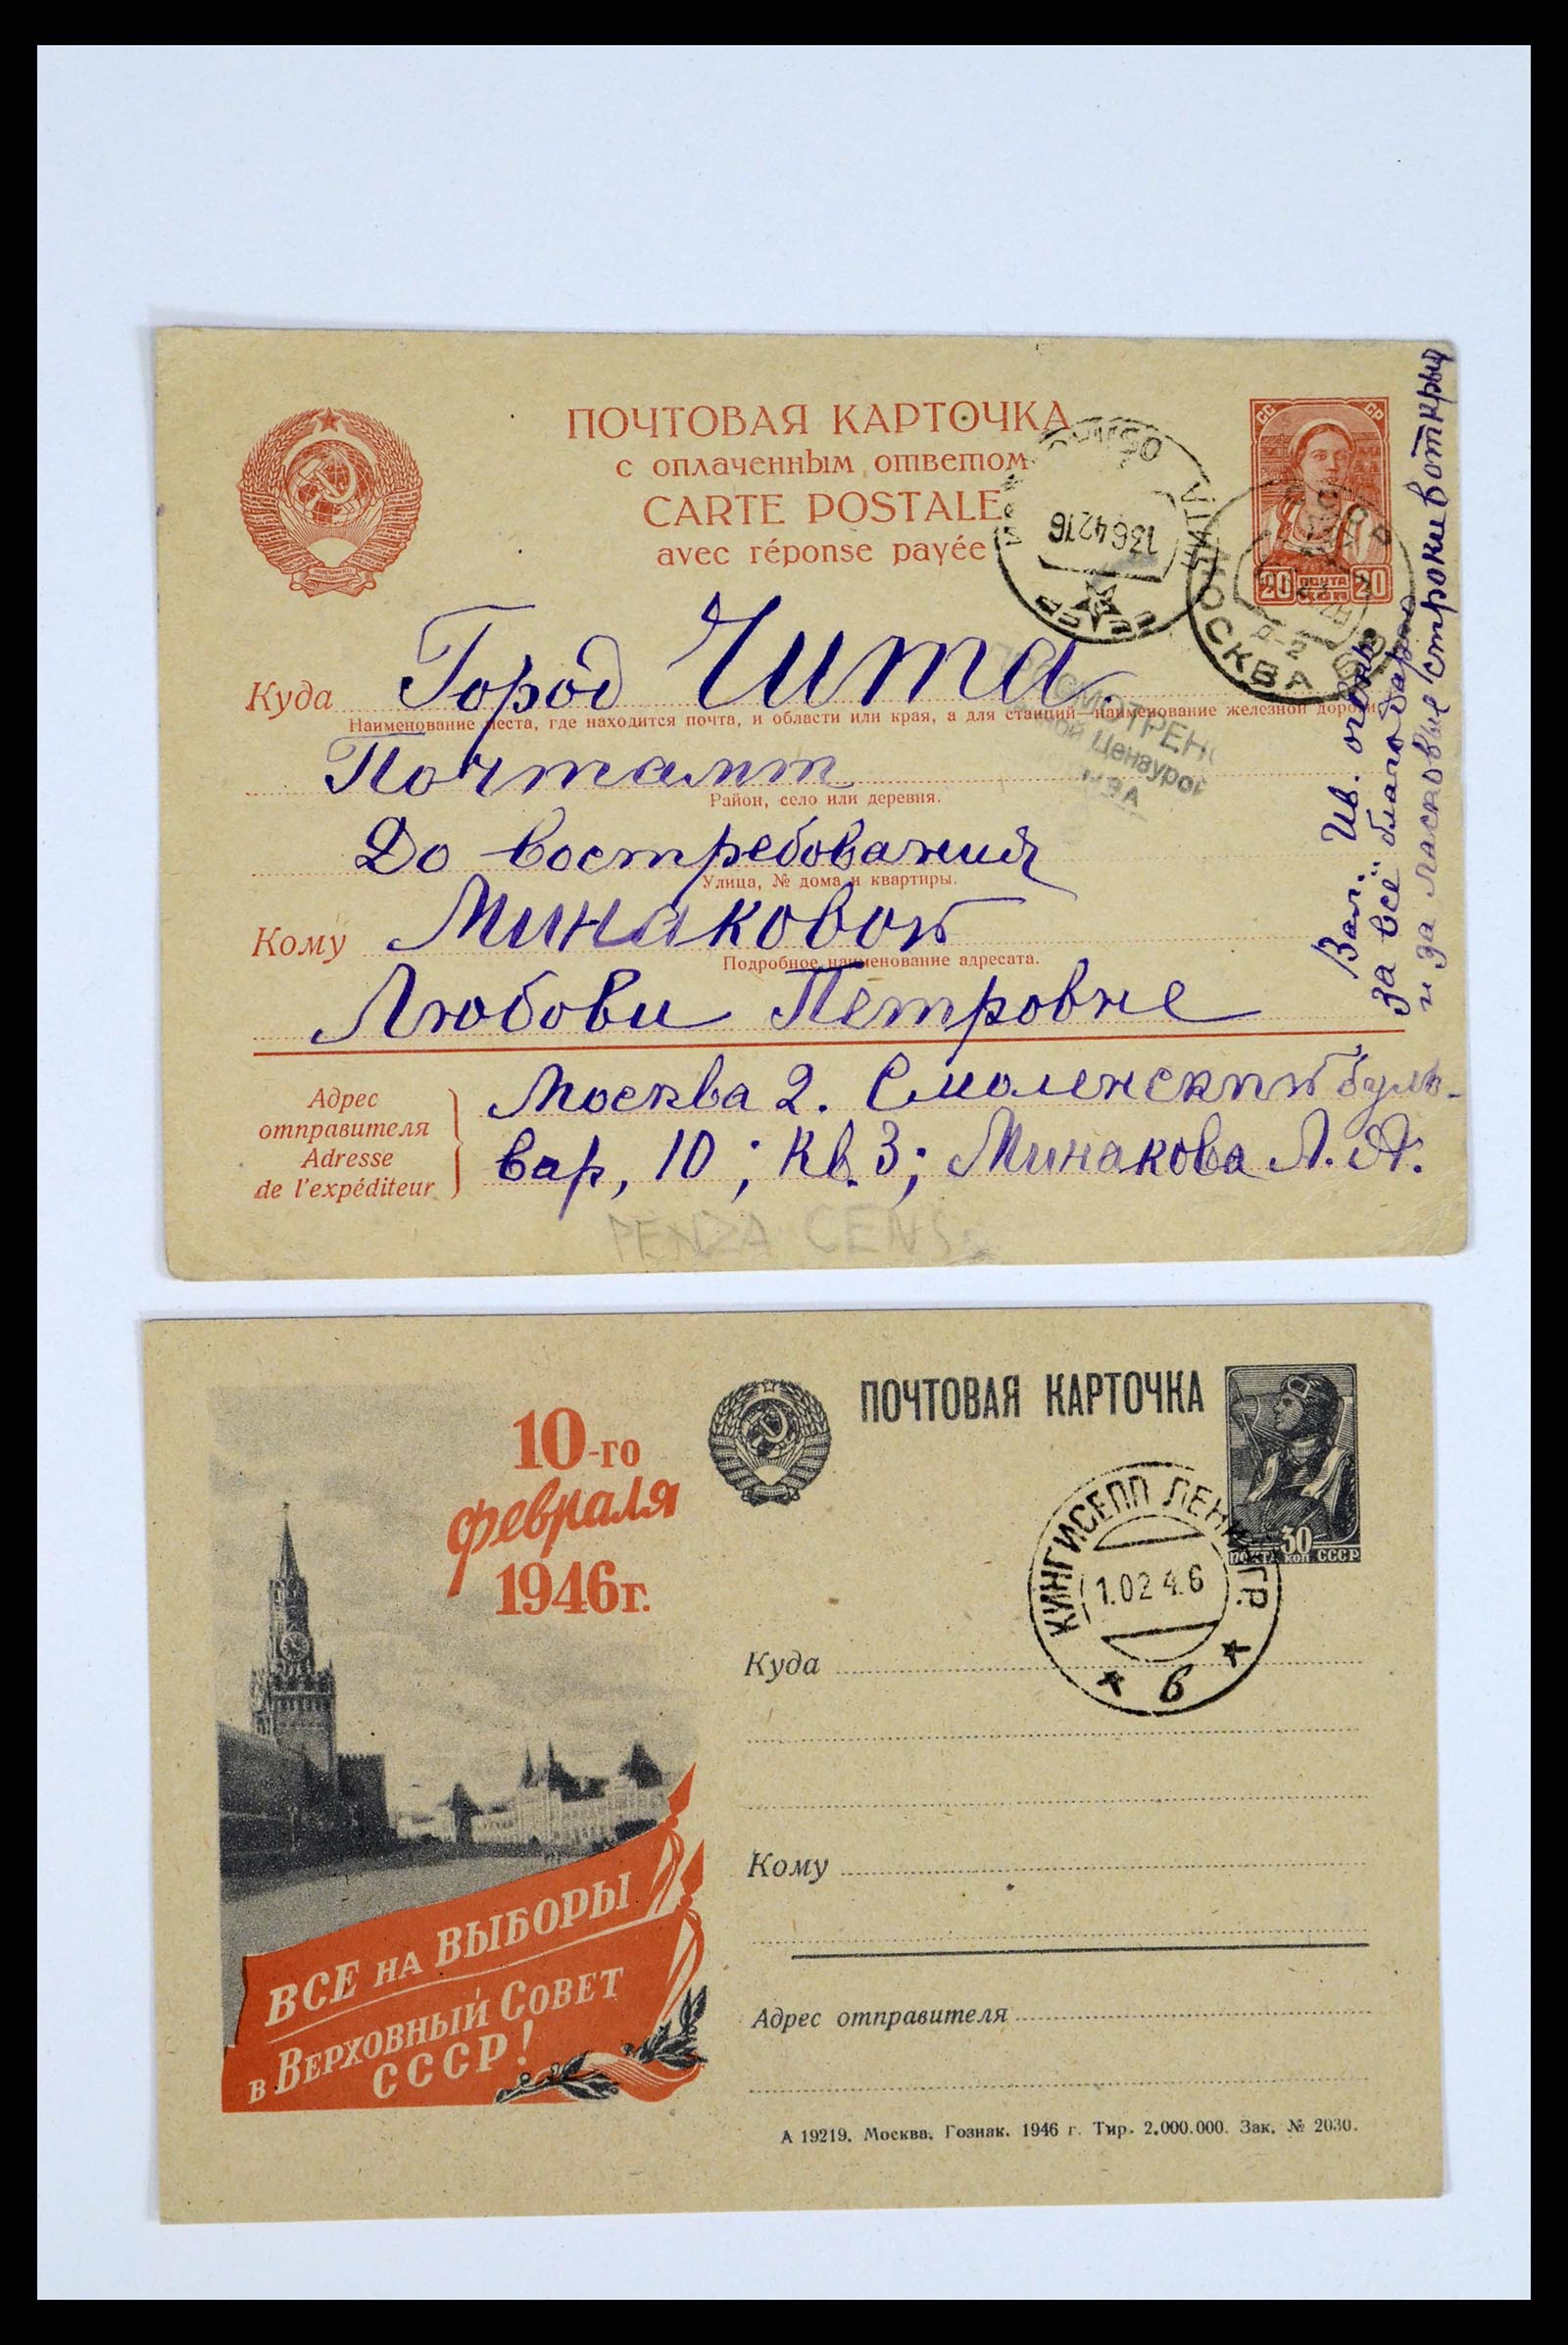 ПОЧТОВАЯ КАРТОЧКА
с оплаченным ответом
CARTE POSTALE
avec réponse payée
СС СР
20 ПОЧТА КОП 20
ЧИТА
13 6 42 16
СССР
МОСКВА
Куда Город Чита.
Наименование места, где находится почта, и области или края, а для станций—наименование железной дороги
ПРОСМОТРЕНО
Цензурой
Почтамт
Район, село или деревня.
До востребования
Улица, № дома и квартиры.
Кому Минаковой
Подробное наименование адресата.
Любови Петровне
Адрес
отправителя
Adresse
de l'expéditeur
Москва 2. Смоленский буль-
вар, 10; кв. 3; Минакова Л. А.
Вал. Ив. очень
за всё благодарю
и за ласковые строки в открыт
PENZA CENS.
10-го
февраля
1946г.
ПОЧТОВАЯ КАРТОЧКА
30
ПОЧТА КОП. СССР
КИНГИСЕПП ЛЕНИНГР.
1.02 4.6
в
Куда
Кому
ВСЕ НА ВЫБОРЫ
в ВЕРХОВНЫЙ СОВЕТ
СССР!
Адрес отправителя
А 19219. Москва. Гознак. 1946 г. Тир. 2.000.000. Зак. № 2030.